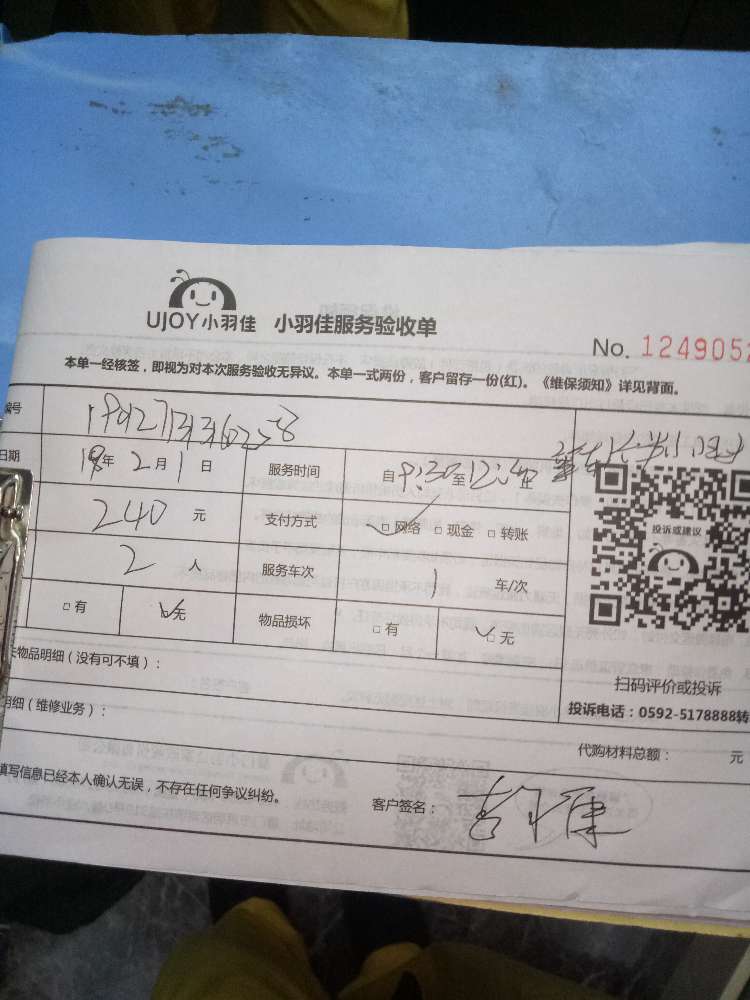 UJOY小羽佳 小羽佳服务验收单
No. 124905
本单一经核签，即视为对本次服务验收无异议。本单一式两份，客户留存一份(红)。《维保须知》详见背面。
编号
日期 18年 2月 1日 服务时间 自9:30至12:
240 元 支付方式 ☑网络 □现金 □转账
2 人 服务车次 1 车/次
□有 ☑无 物品损坏 □有 ☑无
投诉或建议
扫码评价或投诉
投诉电话：0592-5178888转
物品明细（没有可不填）：
明细（维修业务）：
代购材料总额： 元
填写信息已经本人确认无误，不存在任何争议纠纷。 客户签名：